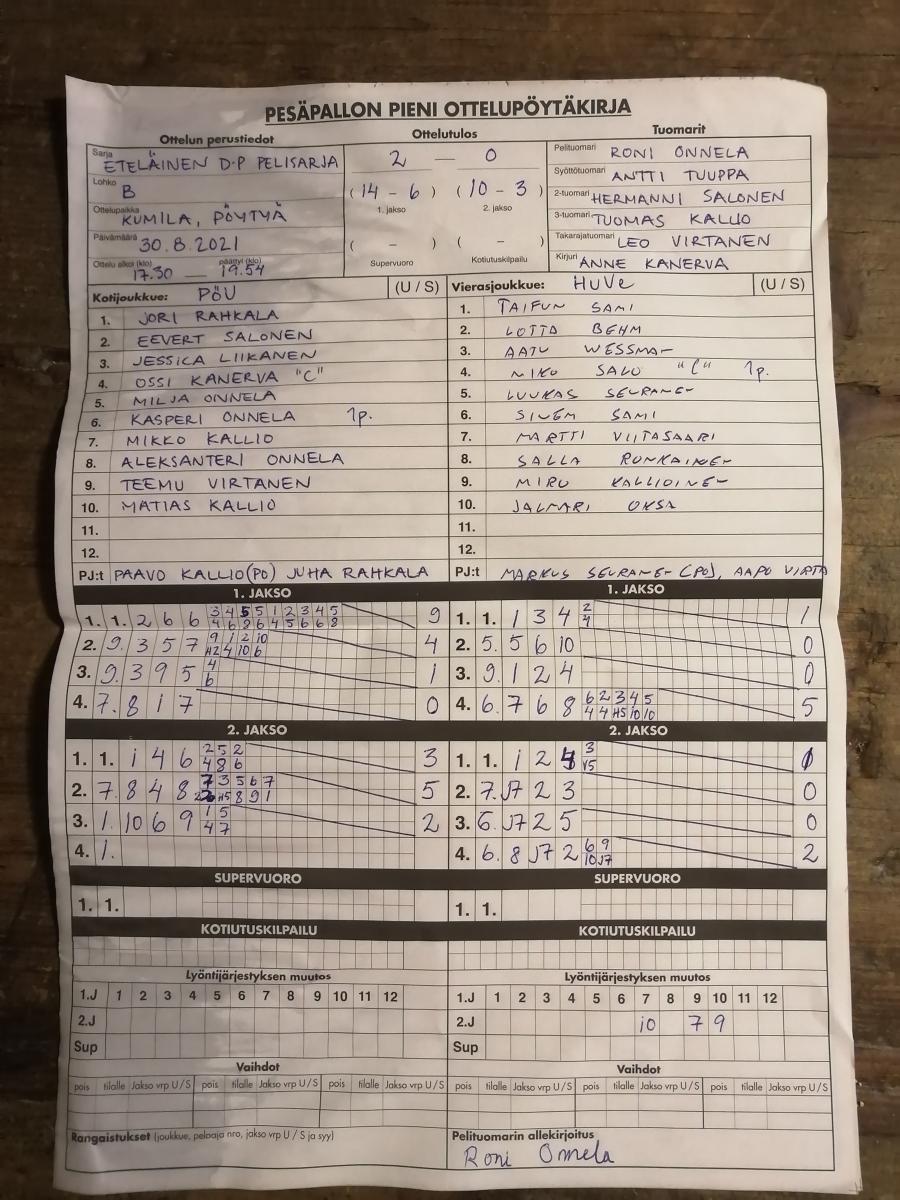 PESÄPALLON PIENI OTTELUPÖYTÄKIRJA
Ottelun perustiedot
Ottelutulos
Tuomarit
Sarja ETELÄINEN D-P PELISARJA
Lohko B
Ottelupaikka KUMILA, PÖYTYÄ
Päivämäärä 30.8.2021
Ottelu alkoi (klo) 17.30 — päättyi (klo) 19.54
2 — 0
(14 - 6) (10 - 3)
1. jakso 2. jakso
( - ) ( - )
Supervuoro Kotiutuskilpailu
Pelituomari RONI ONNELA
Syöttötuomari ANTTI TUUPPA
2-tuomari HERMANNI SALONEN
3-tuomari TUOMAS KALLIO
Takarajatuomari LEO VIRTANEN
Kirjuri ANNE KANERVA
Kotijoukkue: PÖU (U / S)
1. JORI RAHKALA
2. EEVERT SALONEN
3. JESSICA LIIKANEN
4. OSSI KANERVA "C"
5. MILJA ONNELA
6. KASPERI ONNELA 1p.
7. MIKKO KALLIO
8. ALEKSANTERI ONNELA
9. TEEMU VIRTANEN
10. MATIAS KALLIO
11.
12.
PJ:t PAAVO KALLIO (PO) JUHA RAHKALA
Vierasjoukkue: HUVE (U / S)
1. TAIFUN SAMI
2. LOTTA BEHM
3. AATU WESSMAN
4. NIKO SALO "C" 1p.
5. LUUKAS SEURANEN
6. SIVEM SAMI
7. MARTTI VIITASAARI
8. SALLA RONKAINEN
9. MIRO KALLIOINEN
10. JALMARI OKSA
11.
12.
PJ:t MARKUS SEURANEN (PO), AAPO VIRTA
1. JAKSO
1. 1. 2 6 6 3 4 5 5 1 2 3 4 5 9
4 6 8 6 4 5 6 6 8
2. 9. 3 5 7 9 1 2 10 4
H2 4 10 6
3. 9. 3 9 5 4 1
6
4. 7. 8 1 7 0
1. JAKSO
1. 1. 1 3 4 2 1
4
2. 5. 5 6 10 0
3. 9. 1 2 4 0
4. 6. 7 6 8 6 2 3 4 5 5
4 4 H5 10 10
2. JAKSO
1. 1. 1 4 6 2 5 2 3
4 8 6
2. 7. 8 4 8 7 3 5 6 7 5
H5 8 9 1
3. 1. 10 6 9 1 5 2
4 7
4. 1.
2. JAKSO
1. 1. 1 2 4 3
V5
2. 7. J7 2 3 0
3. 6. J7 2 5 0
4. 6. 8 J7 2 6 9 2
10 J7
SUPERVUORO
1. 1.
SUPERVUORO
1. 1.
KOTIUTUSKILPAILU
KOTIUTUSKILPAILU
Lyöntijärjestyksen muutos
1.J 1 2 3 4 5 6 7 8 9 10 11 12
2.J
Sup
Lyöntijärjestyksen muutos
1.J 1 2 3 4 5 6 7 8 9 10 11 12
2.J 10 7 9
Sup
Vaihdot
pois tilalle Jakso vrp U / S pois tilalle Jakso vrp U / S pois tilalle Jakso vrp U / S
Vaihdot
pois tilalle Jakso vrp U / S pois tilalle Jakso vrp U / S pois tilalle Jakso vrp U / S
Rangaistukset (joukkue, pelaaja nro, jakso vrp U / S ja syy)
Pelituomarin allekirjoitus
Roni Onnela